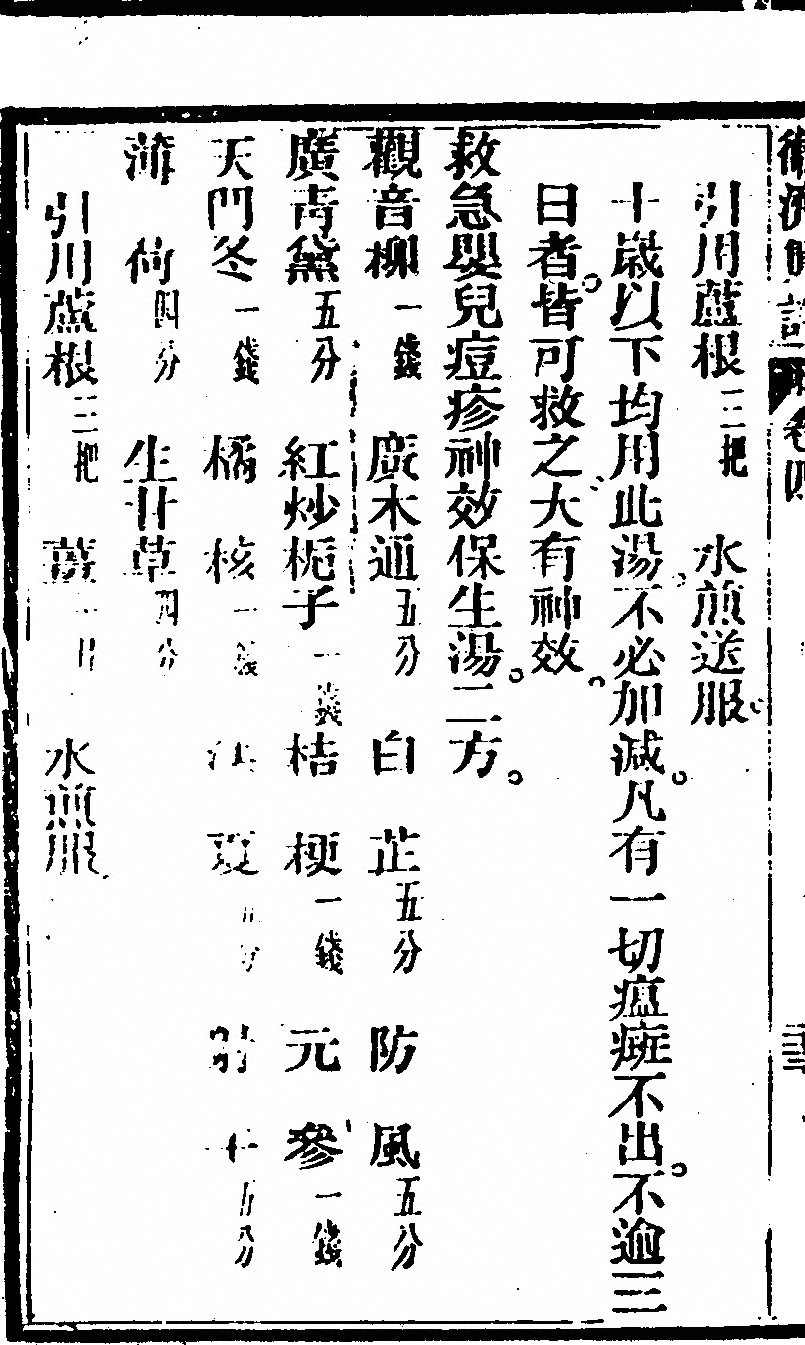 卷四
引用蘆根三把　水煎送服
十歲以下均用此湯不必加減。凡有一切瘟癍不出。不逾三
日者。皆可救之大有神效。
救急嬰兒痘疹神效保生湯。二方。
觀音柳一錢　廣木通五分　白芷五分　防風五分
廣青黛五分　紅炒梔子一錢　桔梗一錢　元參一錢
天門冬一錢　橘核一錢　夏五分　五分
薄荷四分　生甘草四分
引用蘆根三把　水煎服